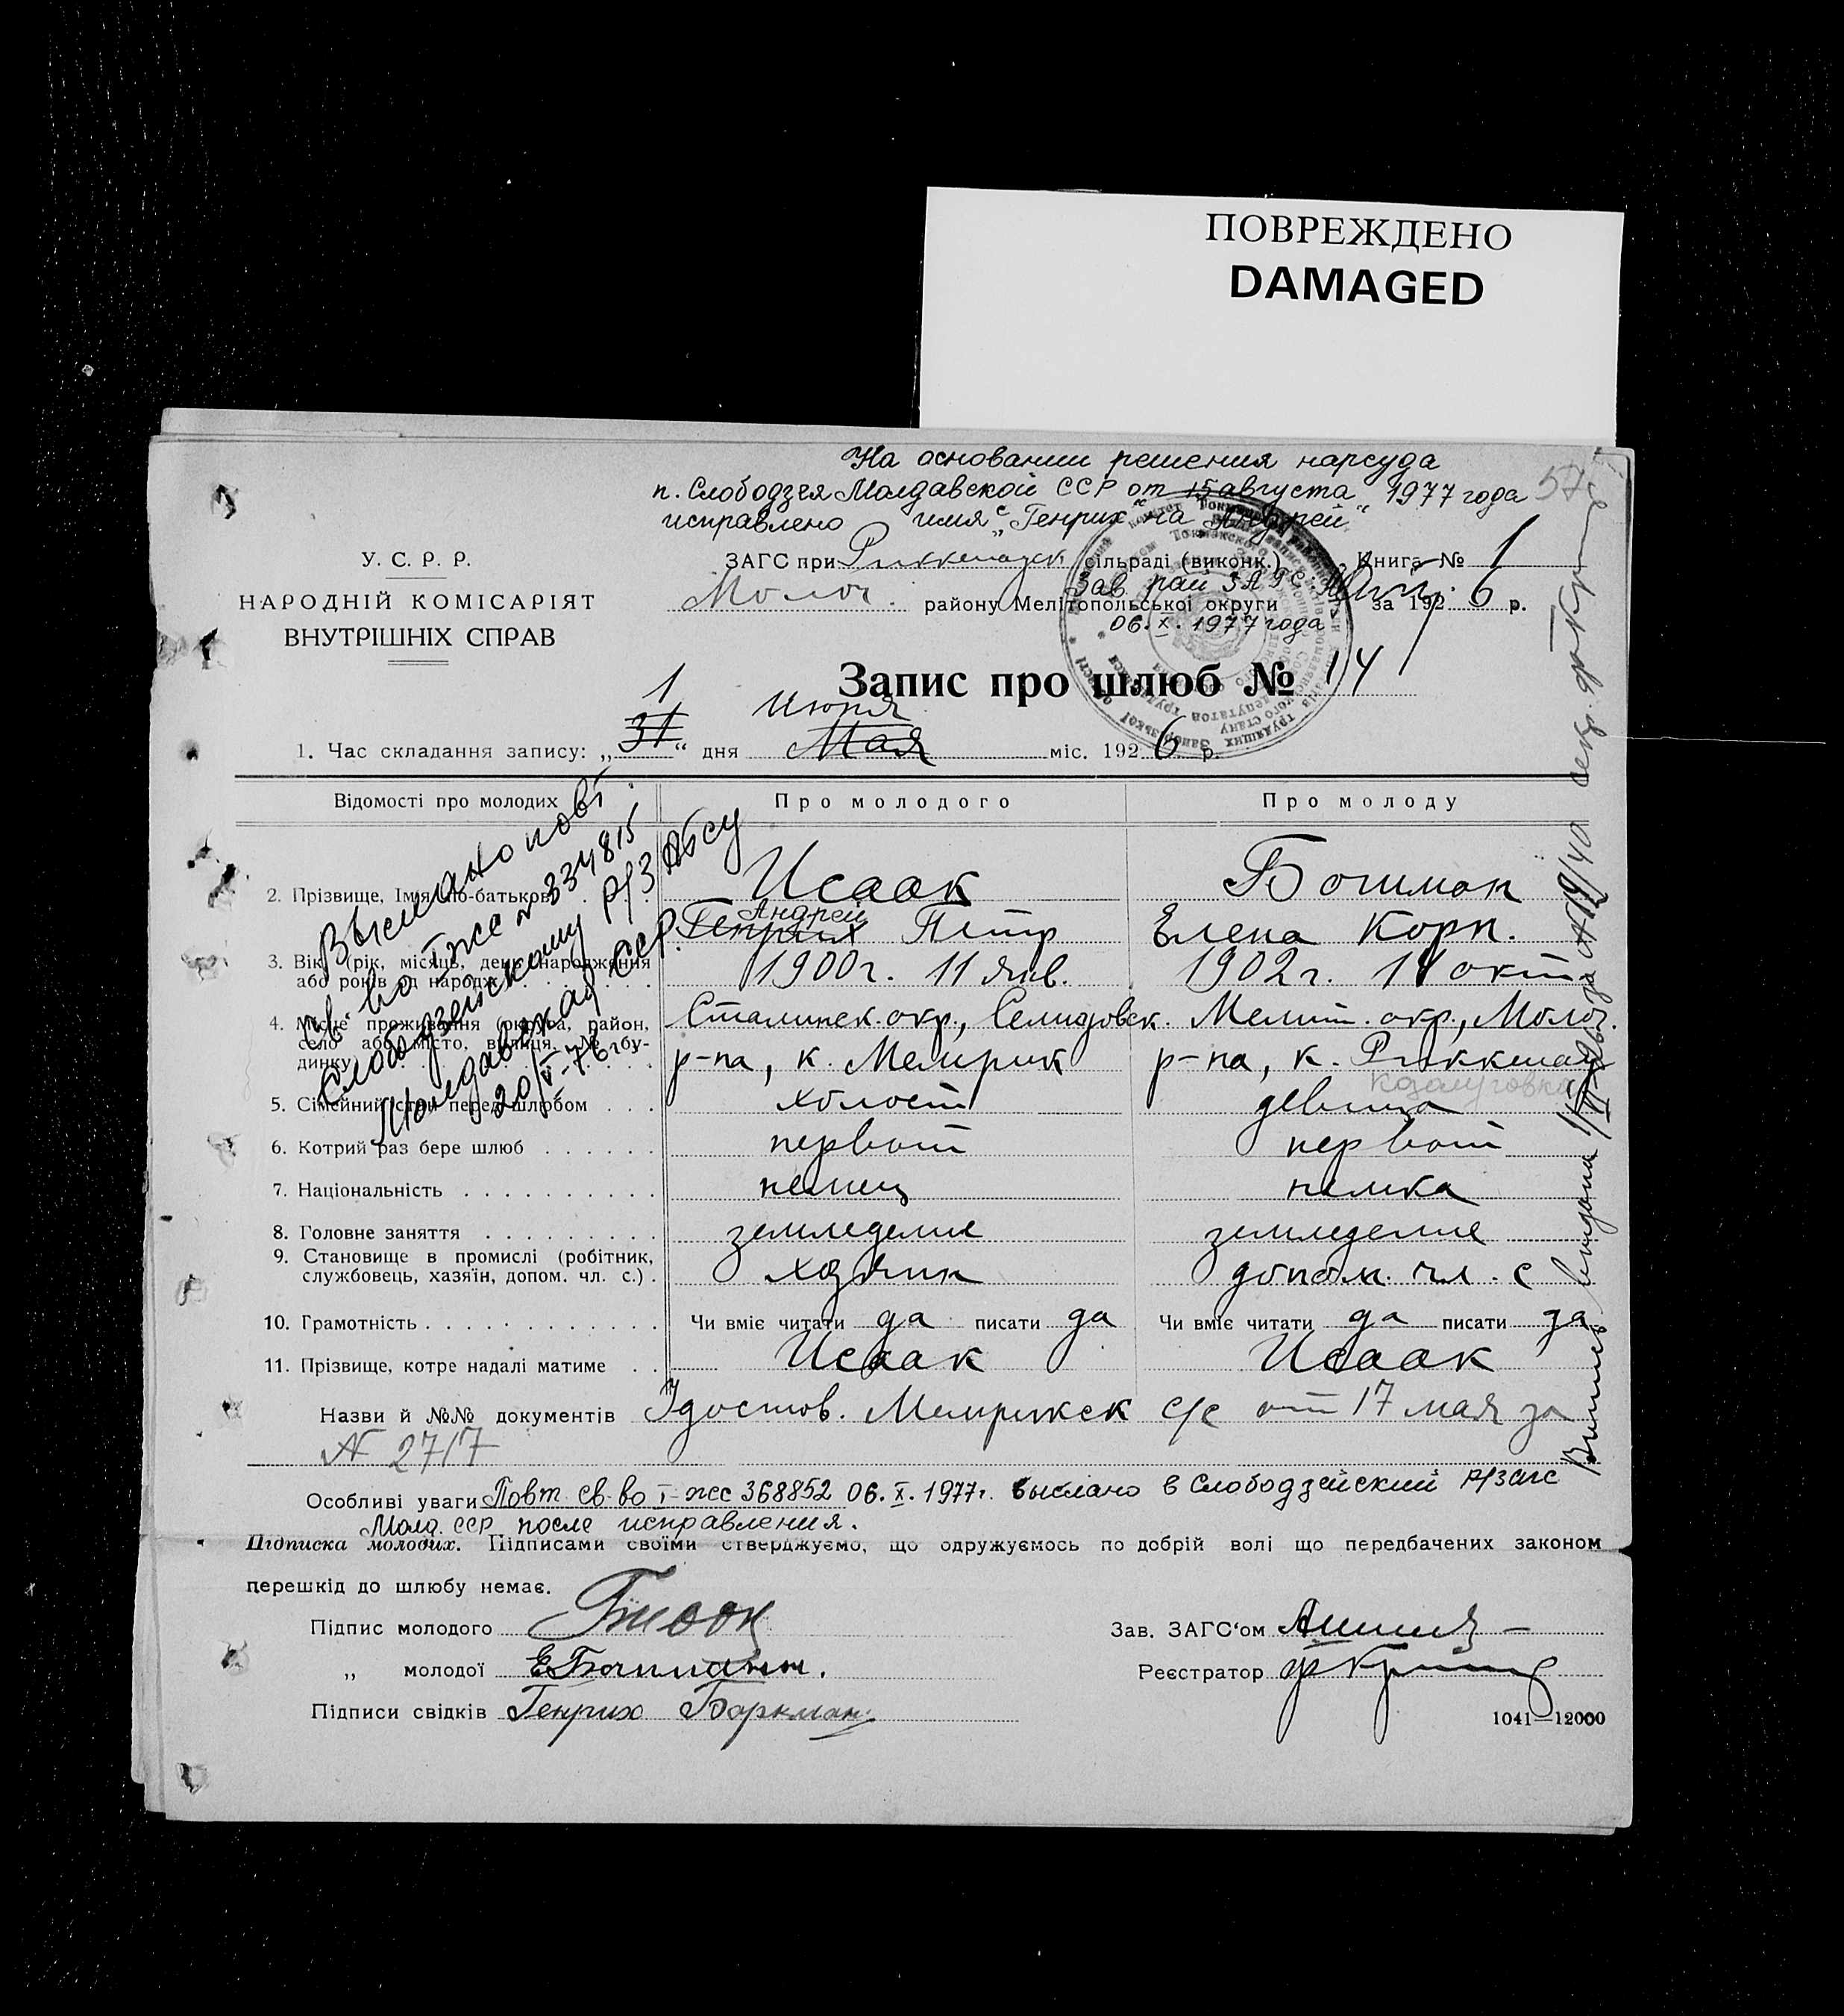 ПОВРЕЖДЕНО
DAMAGED
На основании решения нарсуда
п. Слободзея Молдавской ССР от 15 августа 1977 года
исправлено имя с „Генрих" на „Андрей"
57
У. С. Р. Р.
НАРОДНІЙ КОМІСАРІЯТ
ВНУТРІШНІХ СПРАВ
ЗАГС при Риккенауск сільраді (виконк.) Книга № 1
Молоч. району Мелітопольської округи за 1926 р.
Зав. рай ЗАГС
06.X.1977 года
Запис про шлюб № 14
1 Июня
1. Час складання запису: „31" дня Мая міс. 1926 р.
Відомості про молодих
Про молодого
Про молоду
2. Прізвище, Імя, по-батькові
Исаак
Андрей
Генрих Петр
Елена Корн.
3. Вік (рік, місяць, день народження
або років од народж.)
1900 г. 11 янв.
1902 г. 14 окт
4. Місце проживання (округа, район,
село або місто, вулиця, № бу-
динку)
Сталинск. окр., Селидовск.
р-на, к. Мемрик
Мелит. окр., Молоч.
р-на, к. Риккенау
5. Сімейний стан перед шлюбом . . .
холост
девица
6. Котрий раз бере шлюб . . . . . .
первой
первой
7. Національність . . . . . . . . . .
немец
немка
8. Головне заняття . . . . . . . . .
земледелие
земледелие
9. Становище в промислі (робітник,
службовець, хазяїн, допом. чл. с.) .
хозяин
допом. чл. с
10. Грамотність . . . . . . . . . . . .
Чи вміє читати да писати да
Чи вміє читати да писати да
11. Прізвище, котре надалі матиме . .
Исаак
Исаак
Назви й №№ документів Удостов. Мемрикск с/с от 17 мая за
N 27/7
Особливі уваги Повт. св-во I-жс 368852 06.X.1977г. выслано в Слободзейский р/загс
Молд. ССР после исправления.
Підписка молодих. Підписами своїми стверджуємо, що одружуємось по добрій волі що передбачених законом
перешкід до шлюбу немає.
Підпис молодого
„ молодої
Підписи свідків Генрих Баркман
Зав. ЗАГС'ом
Реєстратор
1041—12000
Выслано повт
св-во жс N 334815
Слободзейскому р/загсу
Молдавской ССР.
20/V-76 г.